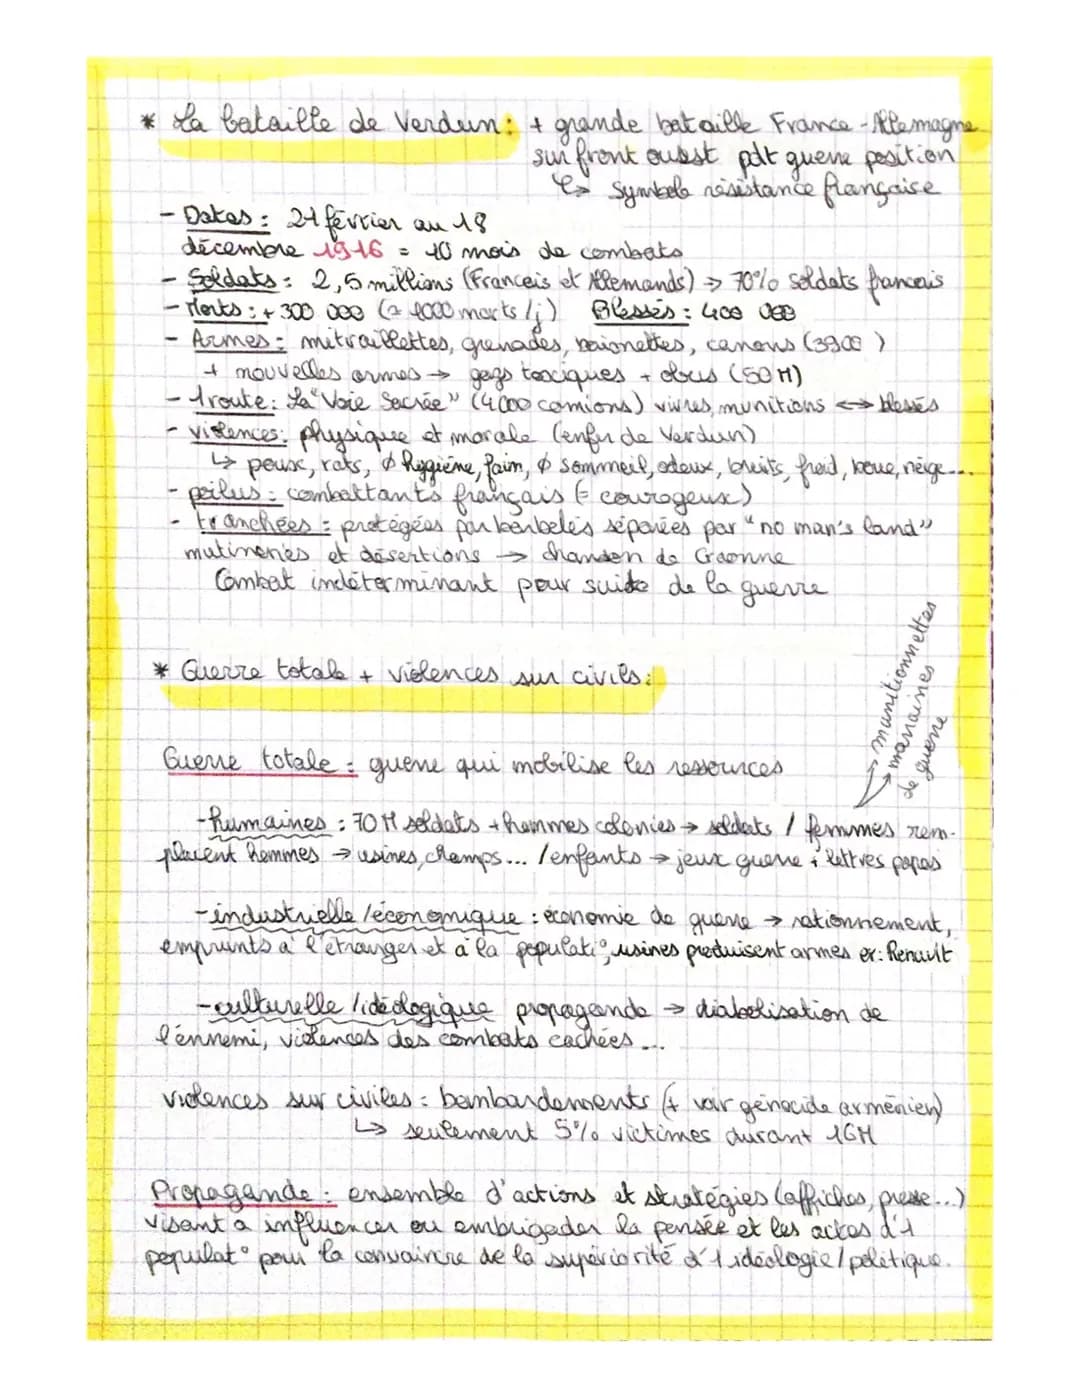 * La bataille de Verdun : + grande bataille France - Allemagne
sur front ouest pdt guerre position
↳ symbole résistance française
- Dates : 21 février au 18
décembre 1916 = 10 mois de combats
- Soldats : 2,5 millions (Francais et Allemands) → 70% soldats francais
- Morts : + 300 000 (≈ 1000 morts /j) Blessés : 400 000
- Armes : mitraillettes, grenades, baionettes, canons (3900)
+ nouvelles armes → gazs toxciques + obus (50 M)
- 1 route : La "Voie Sacrée" (4000 camions) vivres, munitions ↔ blessés
- violences : physique et morale (enfer de Verdun)
↳ poux, rats, ∅ hygiène, faim, ∅ sommeil, odeur, bruits, froid, boue, neige...
- poilus : combattants français (= courageux)
- tranchées : protégées par barbelés séparées par "no man's land"
mutineries et désertions → chanson de Craonne
Combat indéterminant pour suite de la guerre
* Guerre totale + violences sur civils :
→ munitionnettes
→ marraines
de guerre
Guerre totale : guerre qui mobilise les ressources
- humaines : 70 M soldats + hommes colonies → soldats / femmes rem-
placent hommes → usines, champs... / enfants → jeux guerre + lettres papas
- industrielle / économique : économie de guerre → rationnement,
emprunts à l'étranger et à la populat°, usines produisent armes ex: Renault
- culturelle / idéologique propagande → diabolisation de
l'énnemi, violences des combats cachées...
violences sur civiles : bombardements (+ voir génocide arménien)
↳ seulement 5% victimes durant 1GM
Propagande : ensemble d'actions et stratégies (affiches, presse...)
visant à influencer ou embrigader la pensée et les actes d'1
populat° pour la convaincre de la supériorité d'1 idéologie / politique.